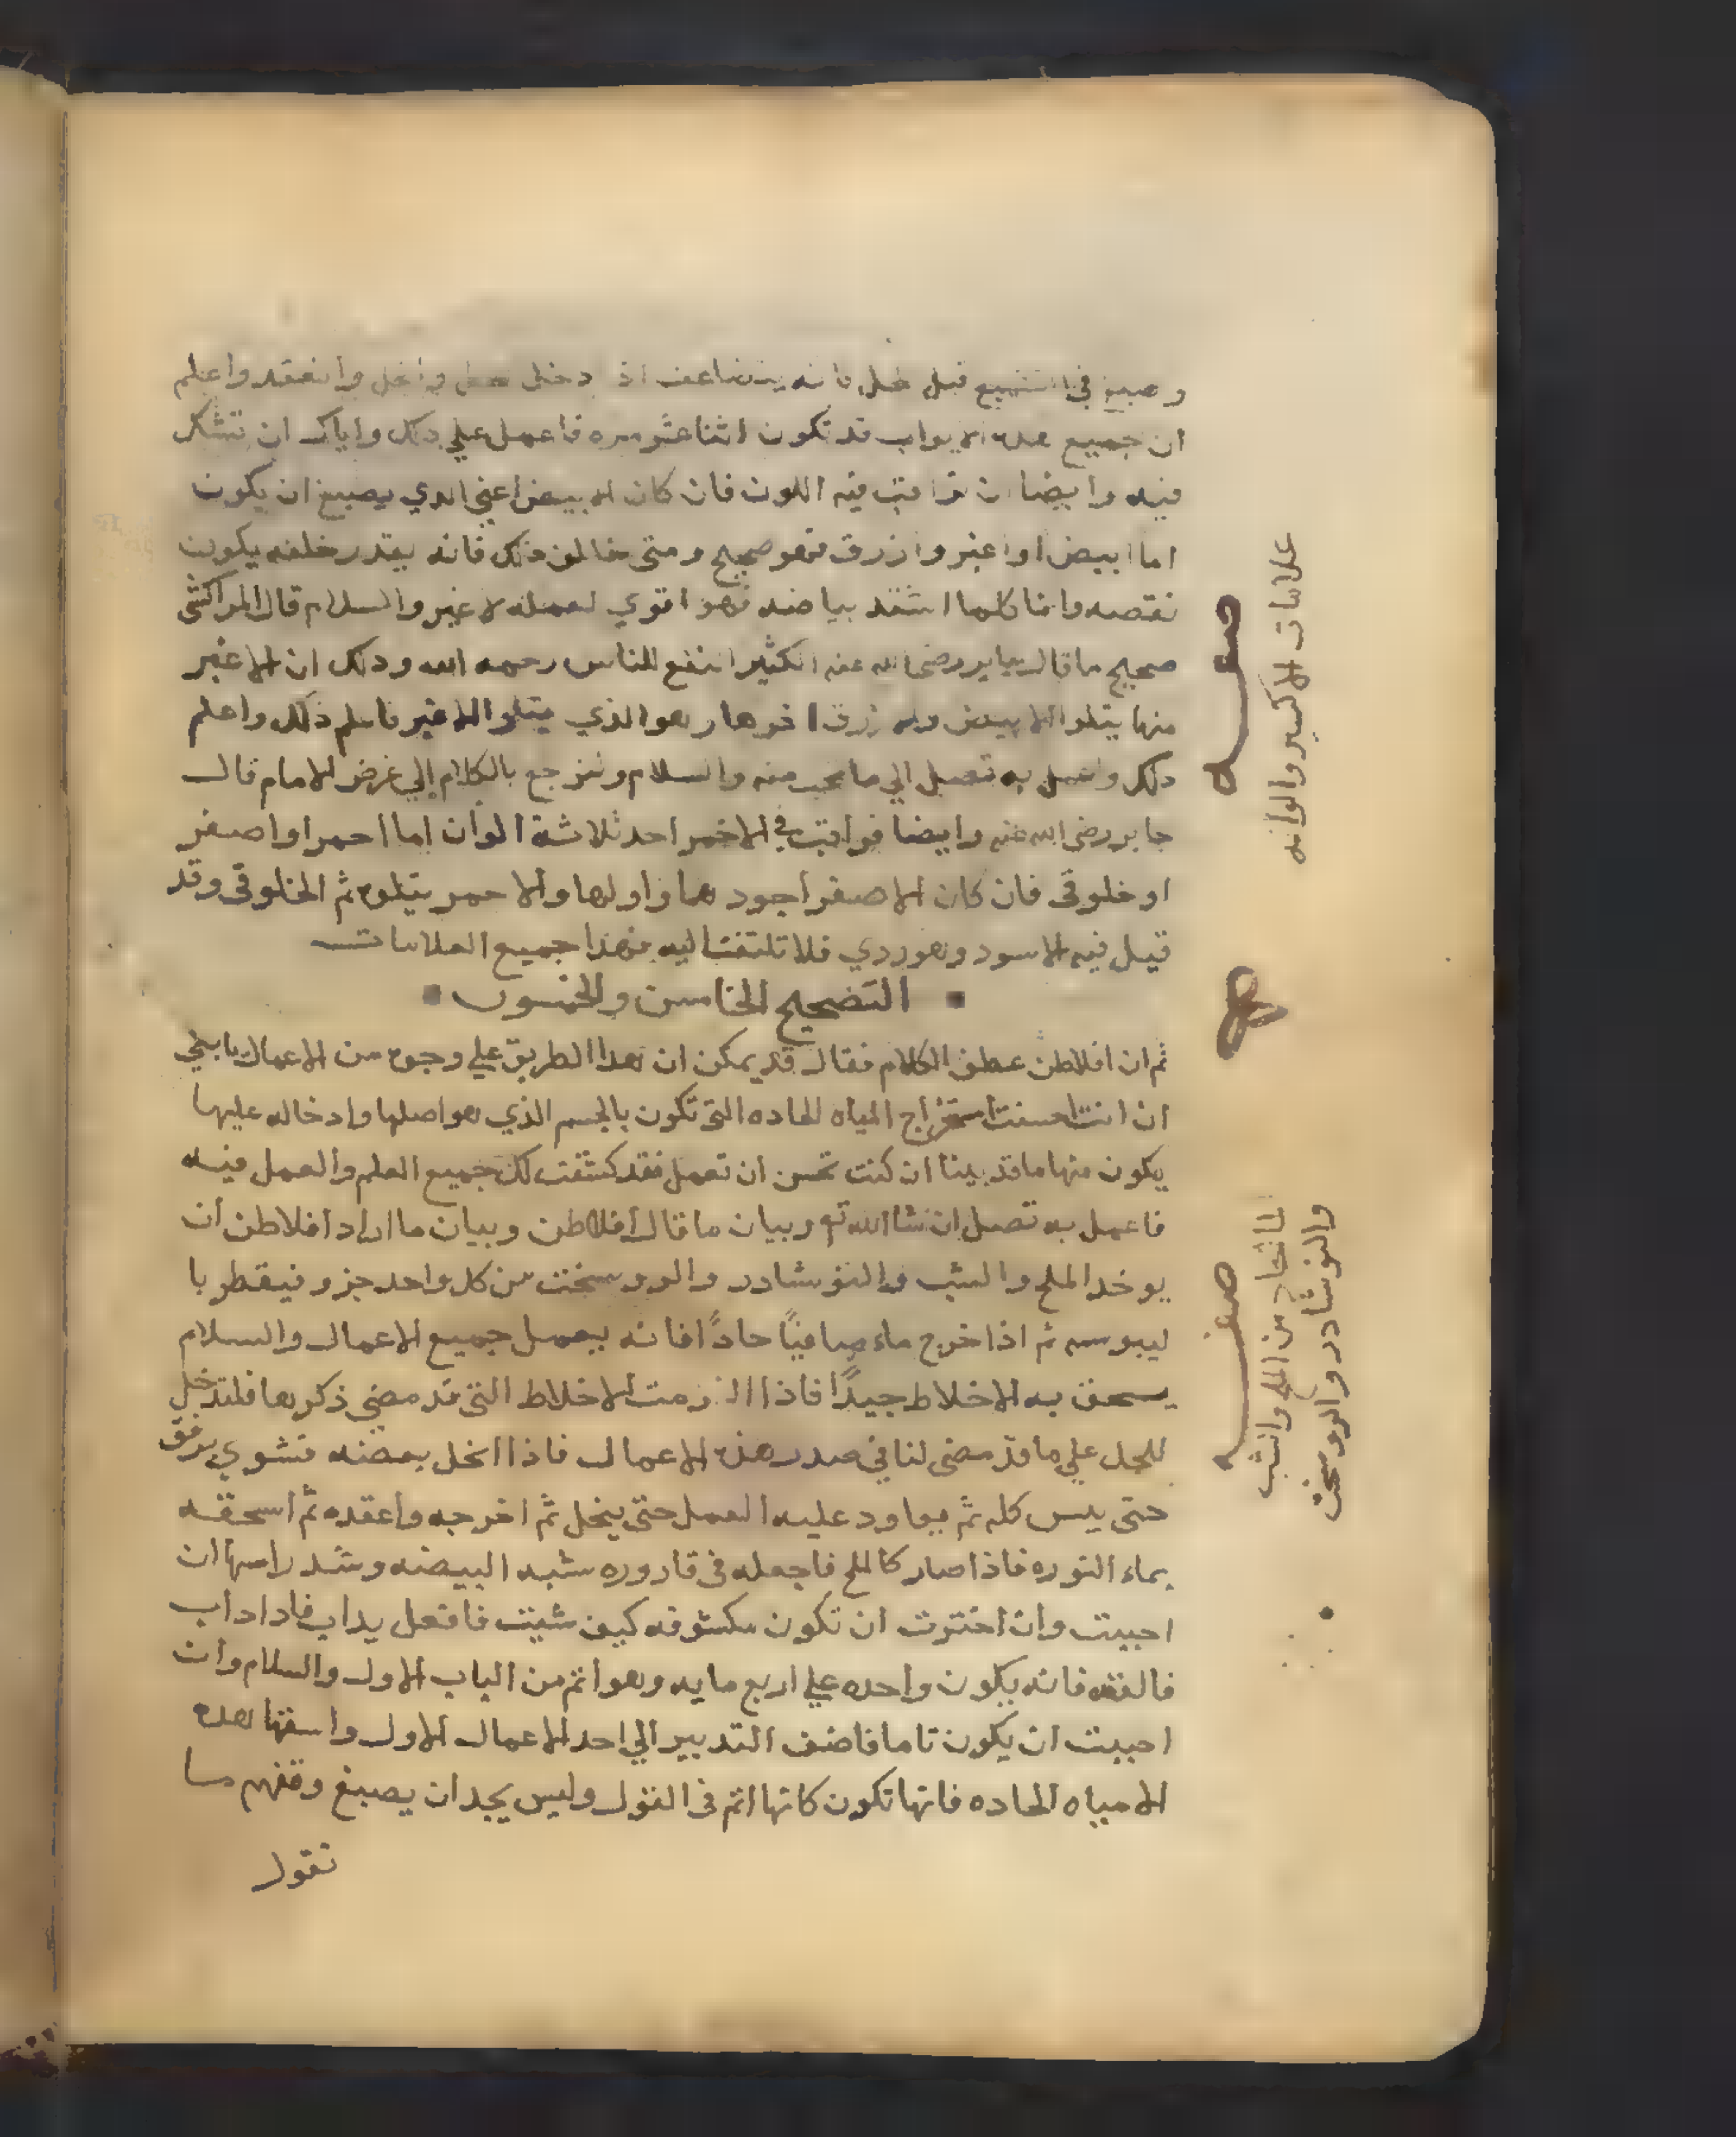 وصبغ في التشميع قبل حله فانه يتضاعف اذا دخل وانحل وانعقد واعلم
ان جميع هده الابواب قد تكون اثنا عشر مره فاعمل علي دلك واياك ان تشك
فيه وايضا ان تراقب فيه اللون فان كان الابيض اعني الدي يصبغ ان يكون
اما ابيض او اغبر وازرق فهو صحيح ومتى خالف ذلك فانه بقدر خلفه يكون
نقصه وانما كلما اشتد بياضه فهو اقوي لعمله لا غير والسلام قال المراكشي
صحيح ما قال جابر رضى الله عنه الكثير انفع للناس رحمه الله ودلك ان الاغبر
منها يتلوا الابيض والازرق اخوها وهو الذي يتلوا الاغبر فاعلم ذلك واعلم
دلك واعمل به تصل الي ما تحب منه والسلام ونرجع بالكلام إلي غرض الامام قال
جابر رضى الله عنه وايضا فراقب في الاخمر احد ثلاثة الوان اما احمر او اصفر
او خلوقى فان كان الاصفر اجودهما واولها والاحمر يتلوه ثم الخلوقى وقد
قيل فيه الاسود وهو ردي فلا تلتفت اليه فهذا جميع العلامات
التصحيح الخامس والخمسون
ثم ان افلاطن عطف الكلام فقال قد يمكن ان هدا الطريق علي وجوه من الاعمال يا بني
ان انت احسنت استخراج المياه الحاده التى تكون بالجسم الذي هو اصلها وادخاله عليها
يكون منها ما قد بينا ان كنت تحسن ان تعمل فقد كشفت لك جميع العلم والعمل فيه
فاعمل به تصل ان شا الله تع وبيان ما قال افلاطن وبيان ما اراد افلاطن ان
يوخد الملح والشب والنوشادر والروسختج من كل واحد جزو فيقطر با
ليبوسه ثم اذا خرج ماء صافيًا حادًا فانه يعمل جميع الاعمال والسلام
يسحق به الاخلاط جيدًا فاذا الزمت الاخلاط التى قد مضى ذكرها فلتدخل
للحل علي ما قد مضى لنا في صدر هذه الاعمال فاذا انحل بعضه فتشوي برفق
حتى يبس كله ثم يعاود عليه العمل حتى ينحل ثم اخرجه واعقده ثم اسحقه
بماء النوره فاذا صار كالملح فاجعله فى قاروره شبه البيضه وشد راسها ان
احببت وان اخترت ان تكون مكشوفه كيف شيت فافعل يداب فاداداب
فالقه فانه يكون واحده علي اربع مايه وهو اتم من الباب الاول والسلام وان
احببت ان يكون تاما فاضف التدبير الي احد الاعمال الاول واسقها هده
الامياه الحاده فانها تكون كانها اتم فى القول وليس يجد ان يصبغ وقفهم ما
نقول
علامات الاكسير والوانه
صفه
صفه
الما الحاد من الملح والشب
والنوشادر والروسختج